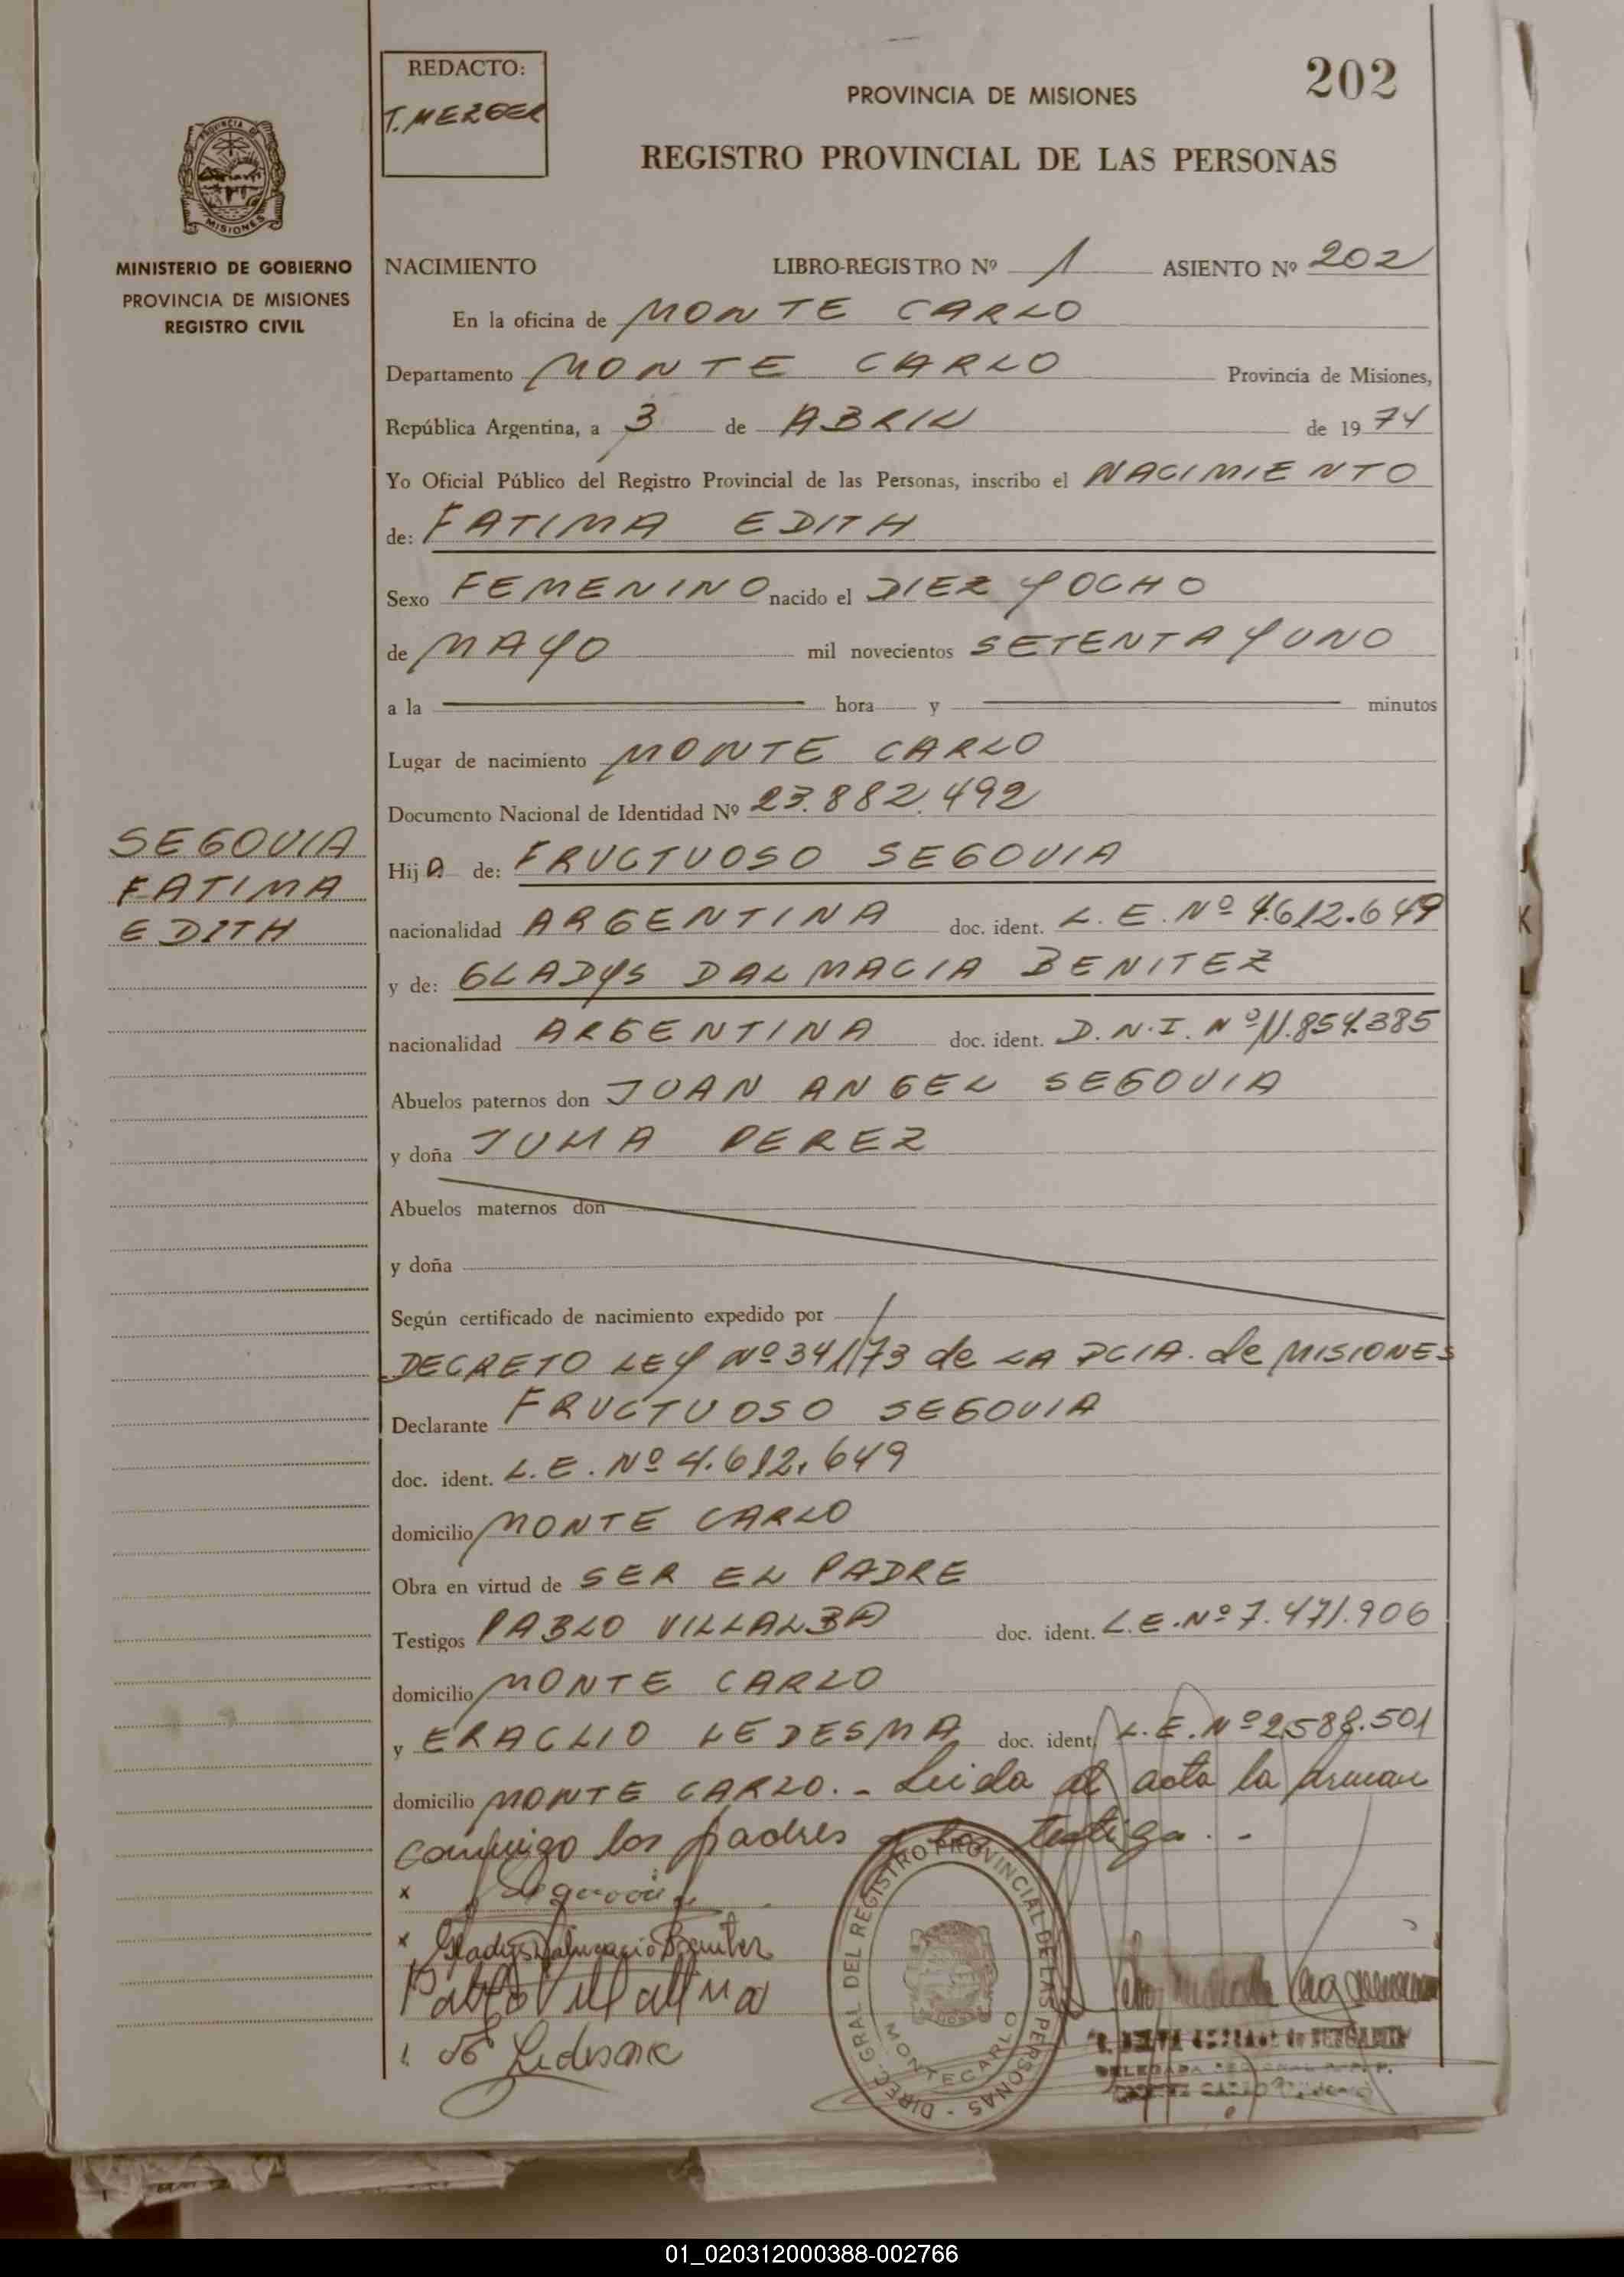 REDACTO:
T. MERGER
202
PROVINCIA DE MISIONES
REGISTRO PROVINCIAL DE LAS PERSONAS
PROVINCIA DE
MISIONES
MINISTERIO DE GOBIERNO
PROVINCIA DE MISIONES
REGISTRO CIVIL
NACIMIENTO LIBRO-REGISTRO Nº 1 ASIENTO Nº 202
En la oficina de MONTE CARLO
Departamento MONTE CARLO Provincia de Misiones,
República Argentina, a 3 de ABRIL de 1974
Yo Oficial Público del Registro Provincial de las Personas, inscribo el NACIMIENTO
de: FATIMA EDITH
Sexo FEMENINO nacido el DIEZ Y OCHO
de MAYO mil novecientos SETENTA Y UNO
a la hora y minutos
Lugar de nacimiento MONTE CARLO
Documento Nacional de Identidad Nº 23.882.492
SEGOVIA
FATIMA
EDITH
Hija de: FRUCTUOSO SEGOVIA
nacionalidad ARGENTINA doc. ident. L.E. Nº 4.612.649
y de: GLADYS DALMACIA BENITEZ
nacionalidad ARGENTINA doc. ident. D.N.I. Nº 11.854.385
Abuelos paternos don JUAN ANGEL SEGOVIA
y doña PEREZ
Abuelos maternos don
y doña
Según certificado de nacimiento expedido por
DECRETO LEY Nº 341/73 de LA PCIA. de MISIONES
Declarante FRUCTUOSO SEGOVIA
doc. ident. L.E. Nº 4.612.649
domicilio MONTE CARLO
Obra en virtud de SER EL PADRE
Testigos PABLO VILLALBA doc. ident. L.E. Nº 7.471.906
domicilio MONTE CARLO
y ERACLIO LEDESMA doc. ident. L.E. Nº 2.588.501
domicilio MONTE CARLO. - Leida el acta la firman
conmigo los padres y los testigos. -
x
x Gladys Dalmacia Benitez
Pablo Villalba
Ledesma
DIREC. GRAL. DEL REGISTRO PROVINCIAL DE LAS PERSONAS -
MONTECARLO
01_020312000388-002766